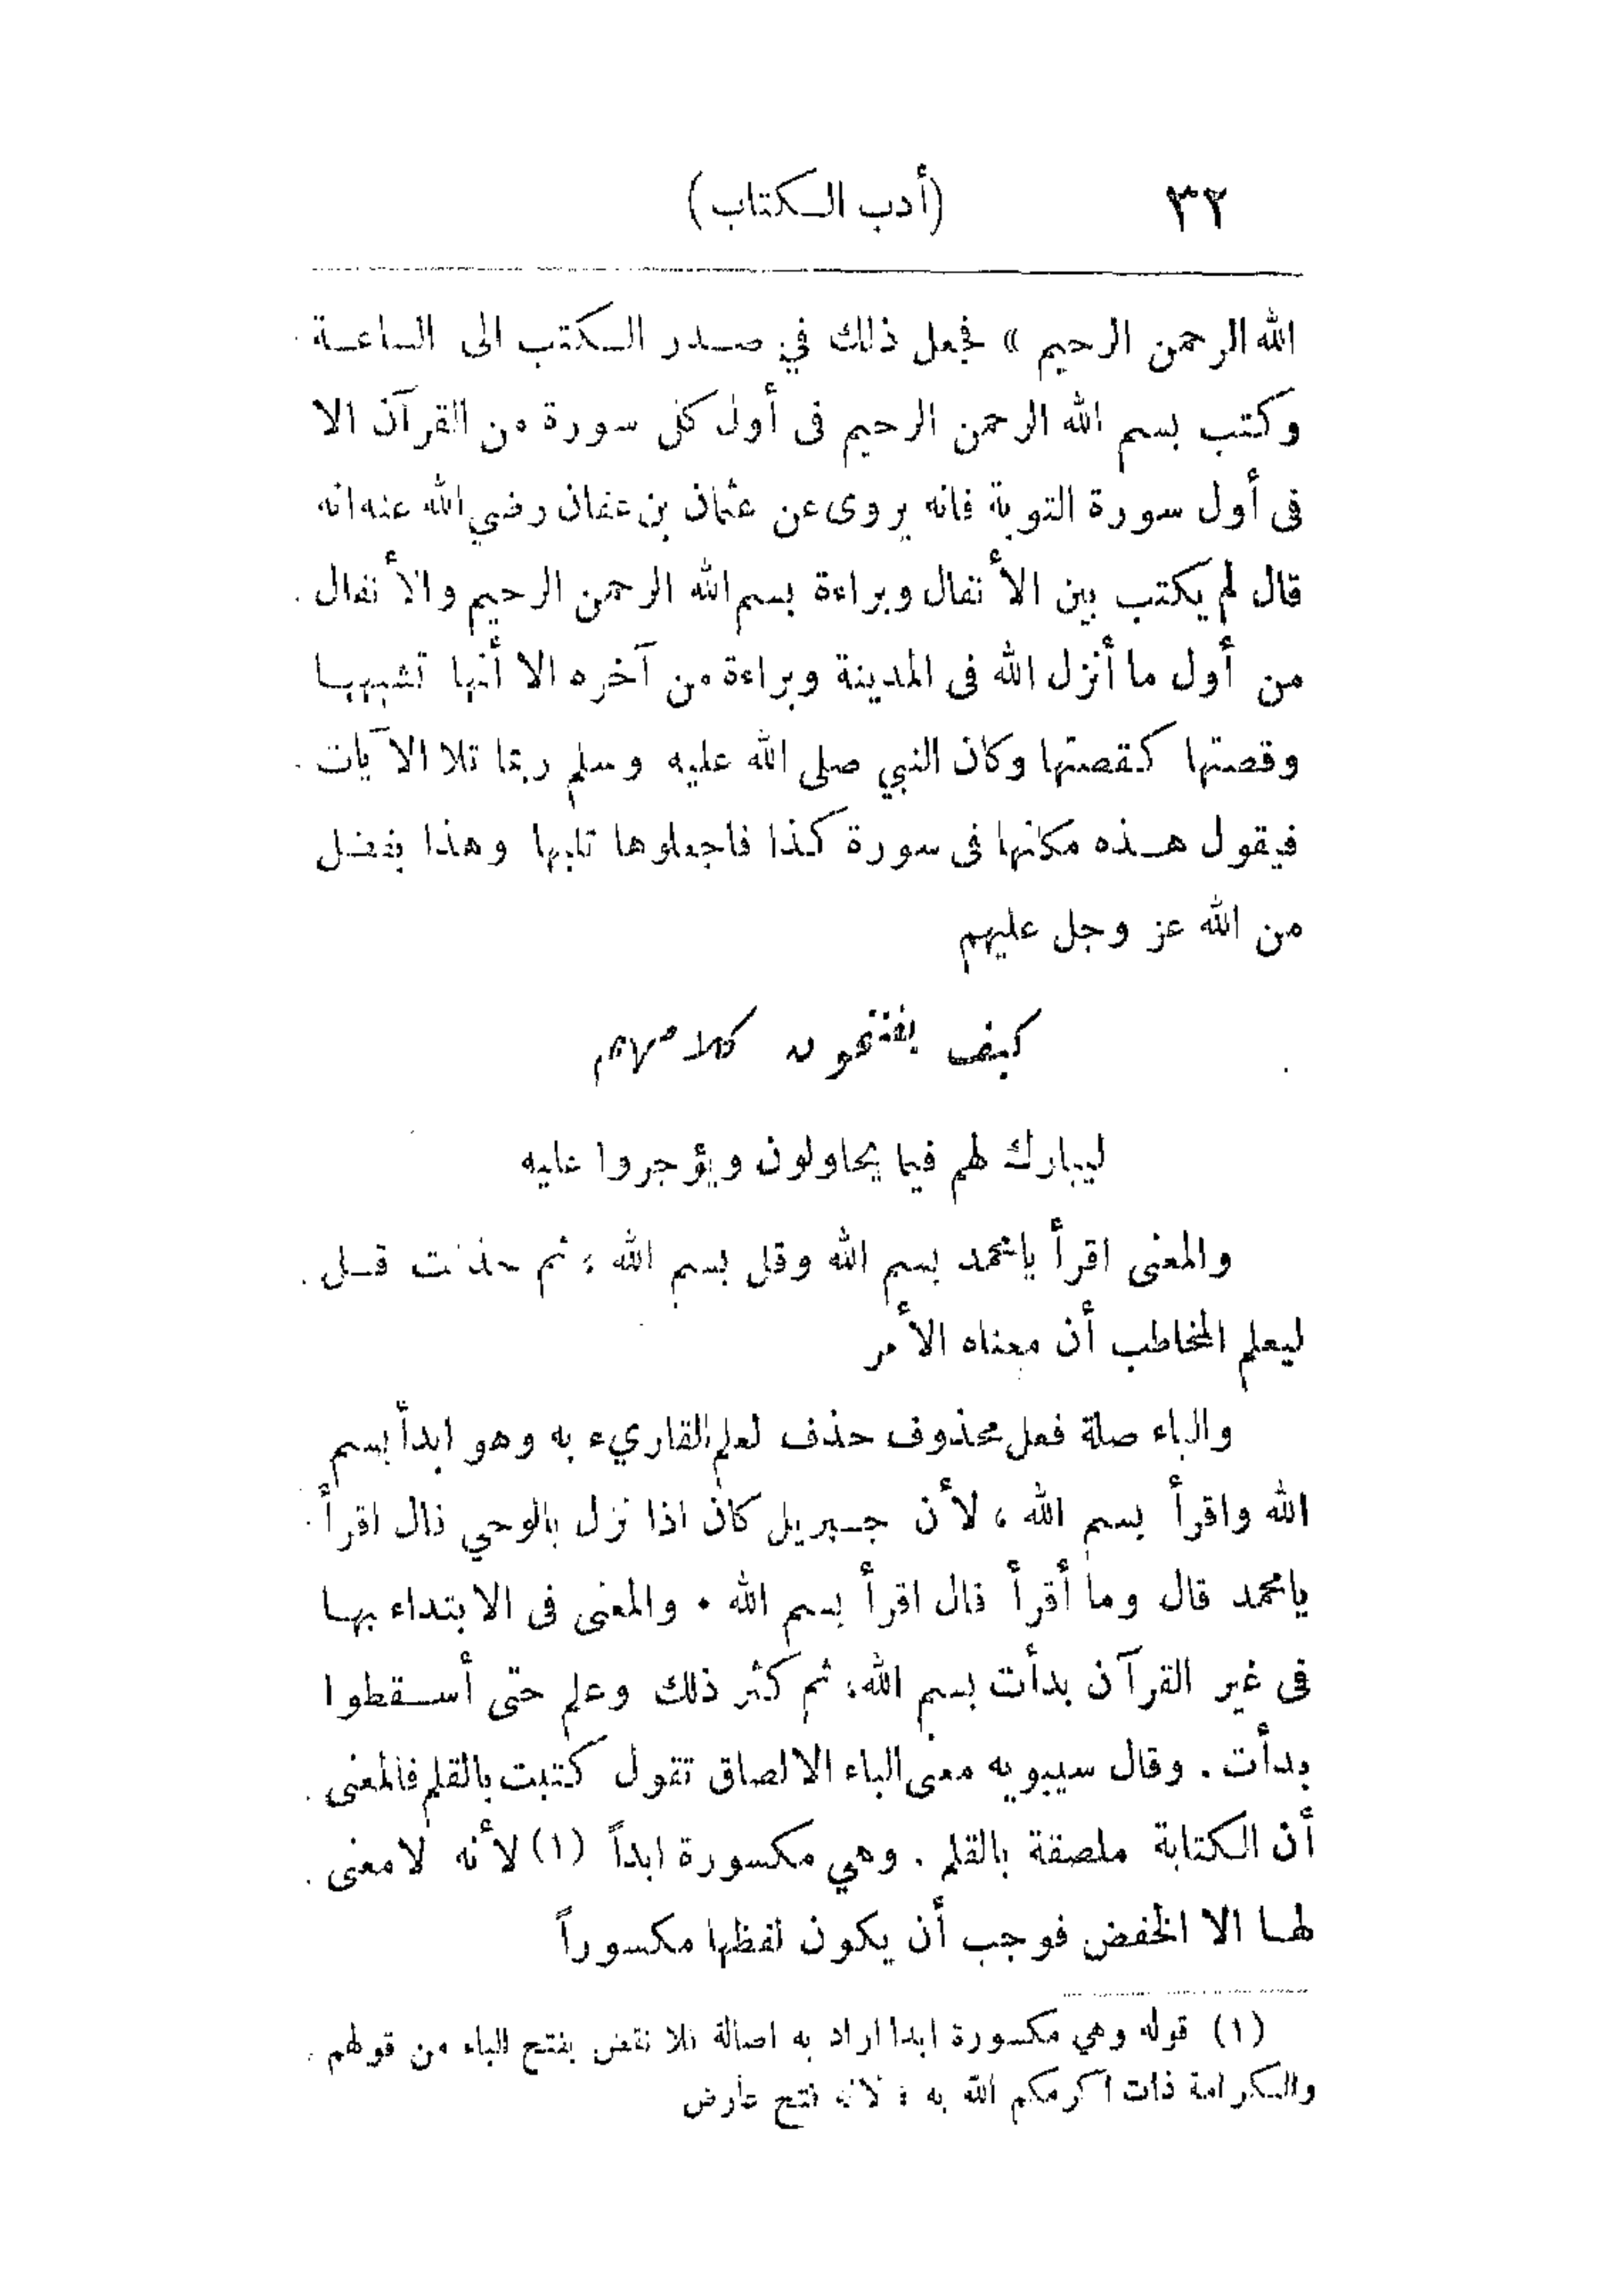 ٣٢ (أدب الكتاب)
الله الرحمن الرحيم » فجعل ذلك في صدر الكتب الى الساعة
وكتب بسم الله الرحمن الرحيم فى أول كل سورة من القرآن الا
فى أول سورة التوبة فانه يروى عن عثمان بن عفان رضي الله عنه انه
قال لم يكتب بين الأنفال وبراءة بسم الله الرحمن الرحيم والأنفال
من أول ما أنزل الله فى المدينة وبراءة من آخره الا أنها تشبهها
وقصتها كقصتها وكان النبي صلى الله عليه وسلم ربما تلا الآيات
فيقول هذه مكانها فى سورة كذا فاجعلوها تليها وهذا بفضل
من الله عز وجل عليهم
كيف يفتتحون كلامهم
ليبارك لهم فيما يحاولون ويؤجروا عليه
والمعنى اقرأ يامحمد بسم الله وقل بسم الله ، ثم حذفت قل
ليعلم المخاطب أن معناه الأمر
والباء صلة فعل محذوف حذف لعلم القاريء به وهو ابدأ بسم
الله واقرأ بسم الله ، لأن جبريل كان اذا نزل بالوحي قال اقرأ
يامحمد قال وما أقرأ قال اقرأ بسم الله . والمعنى فى الابتداء بها
فى غير القرآن بدأت بسم الله، ثم كثر ذلك وعلم حتى أسقطوا
بدأت . وقال سيبويه معنى الباء الالصاق تقول كتبت بالقلم فالمعنى
أن الكتابة ملصقة بالقلم . وهي مكسورة ابداً (١) لأنه لامعنى
لها الا الخفض فوجب أن يكون لفظها مكسوراً
(١) قوله وهي مكسورة ابدا اراد به اصالة فلا نقض بفتح الباء من قولهم
والكرامة ذات اكرمكم الله به ، لانه فتح عارض